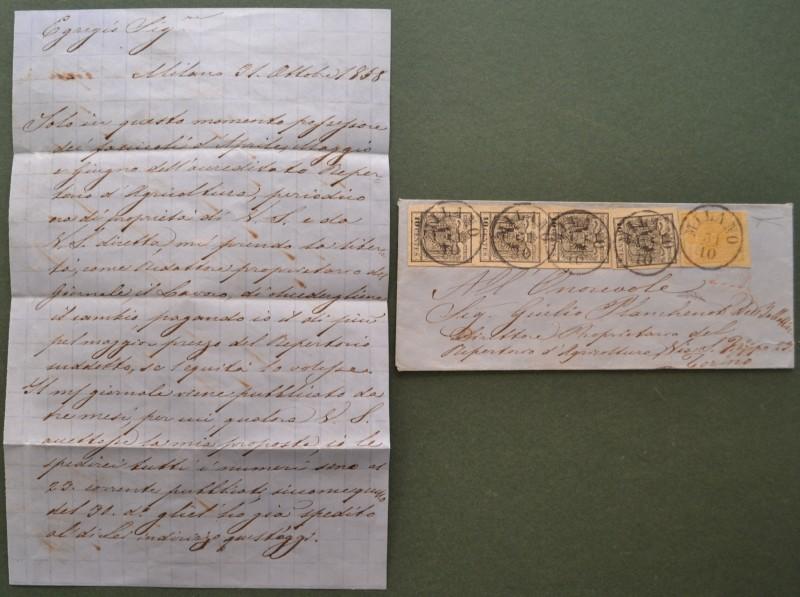 Egregio Sig.re
Milano 31. Ottobre 1858
Solo in questo momento possessore
dei fascicoli d'Aprile, Maggio
e Giugno dell'accreditato Reper=
torio d'Agricoltura, periodico
di proprietà di V. S. e da
V. S. diretto, mi prendo la liber
tà, come Redattore proprietario del
giornale il
il cambio pagando io il di più
pel maggior prezzo del Repertorio
suddetto, se seguità lo volesse.
Il mio giornale viene pubblicato da
tre mesi, per cui qualora V. S.
accettasse la mia proposta, io le
spedirei tutti i numeri sino al
23. corrente pubblicati, siccome quello
del 31. do gliel'ho già spedito
al di Lei indirizzo quest'oggi.
MILANO
31
10
All' Onorevole
Sig. Giulio
Direttore Proprietario del
Repertorio d'Agricoltura
Torino